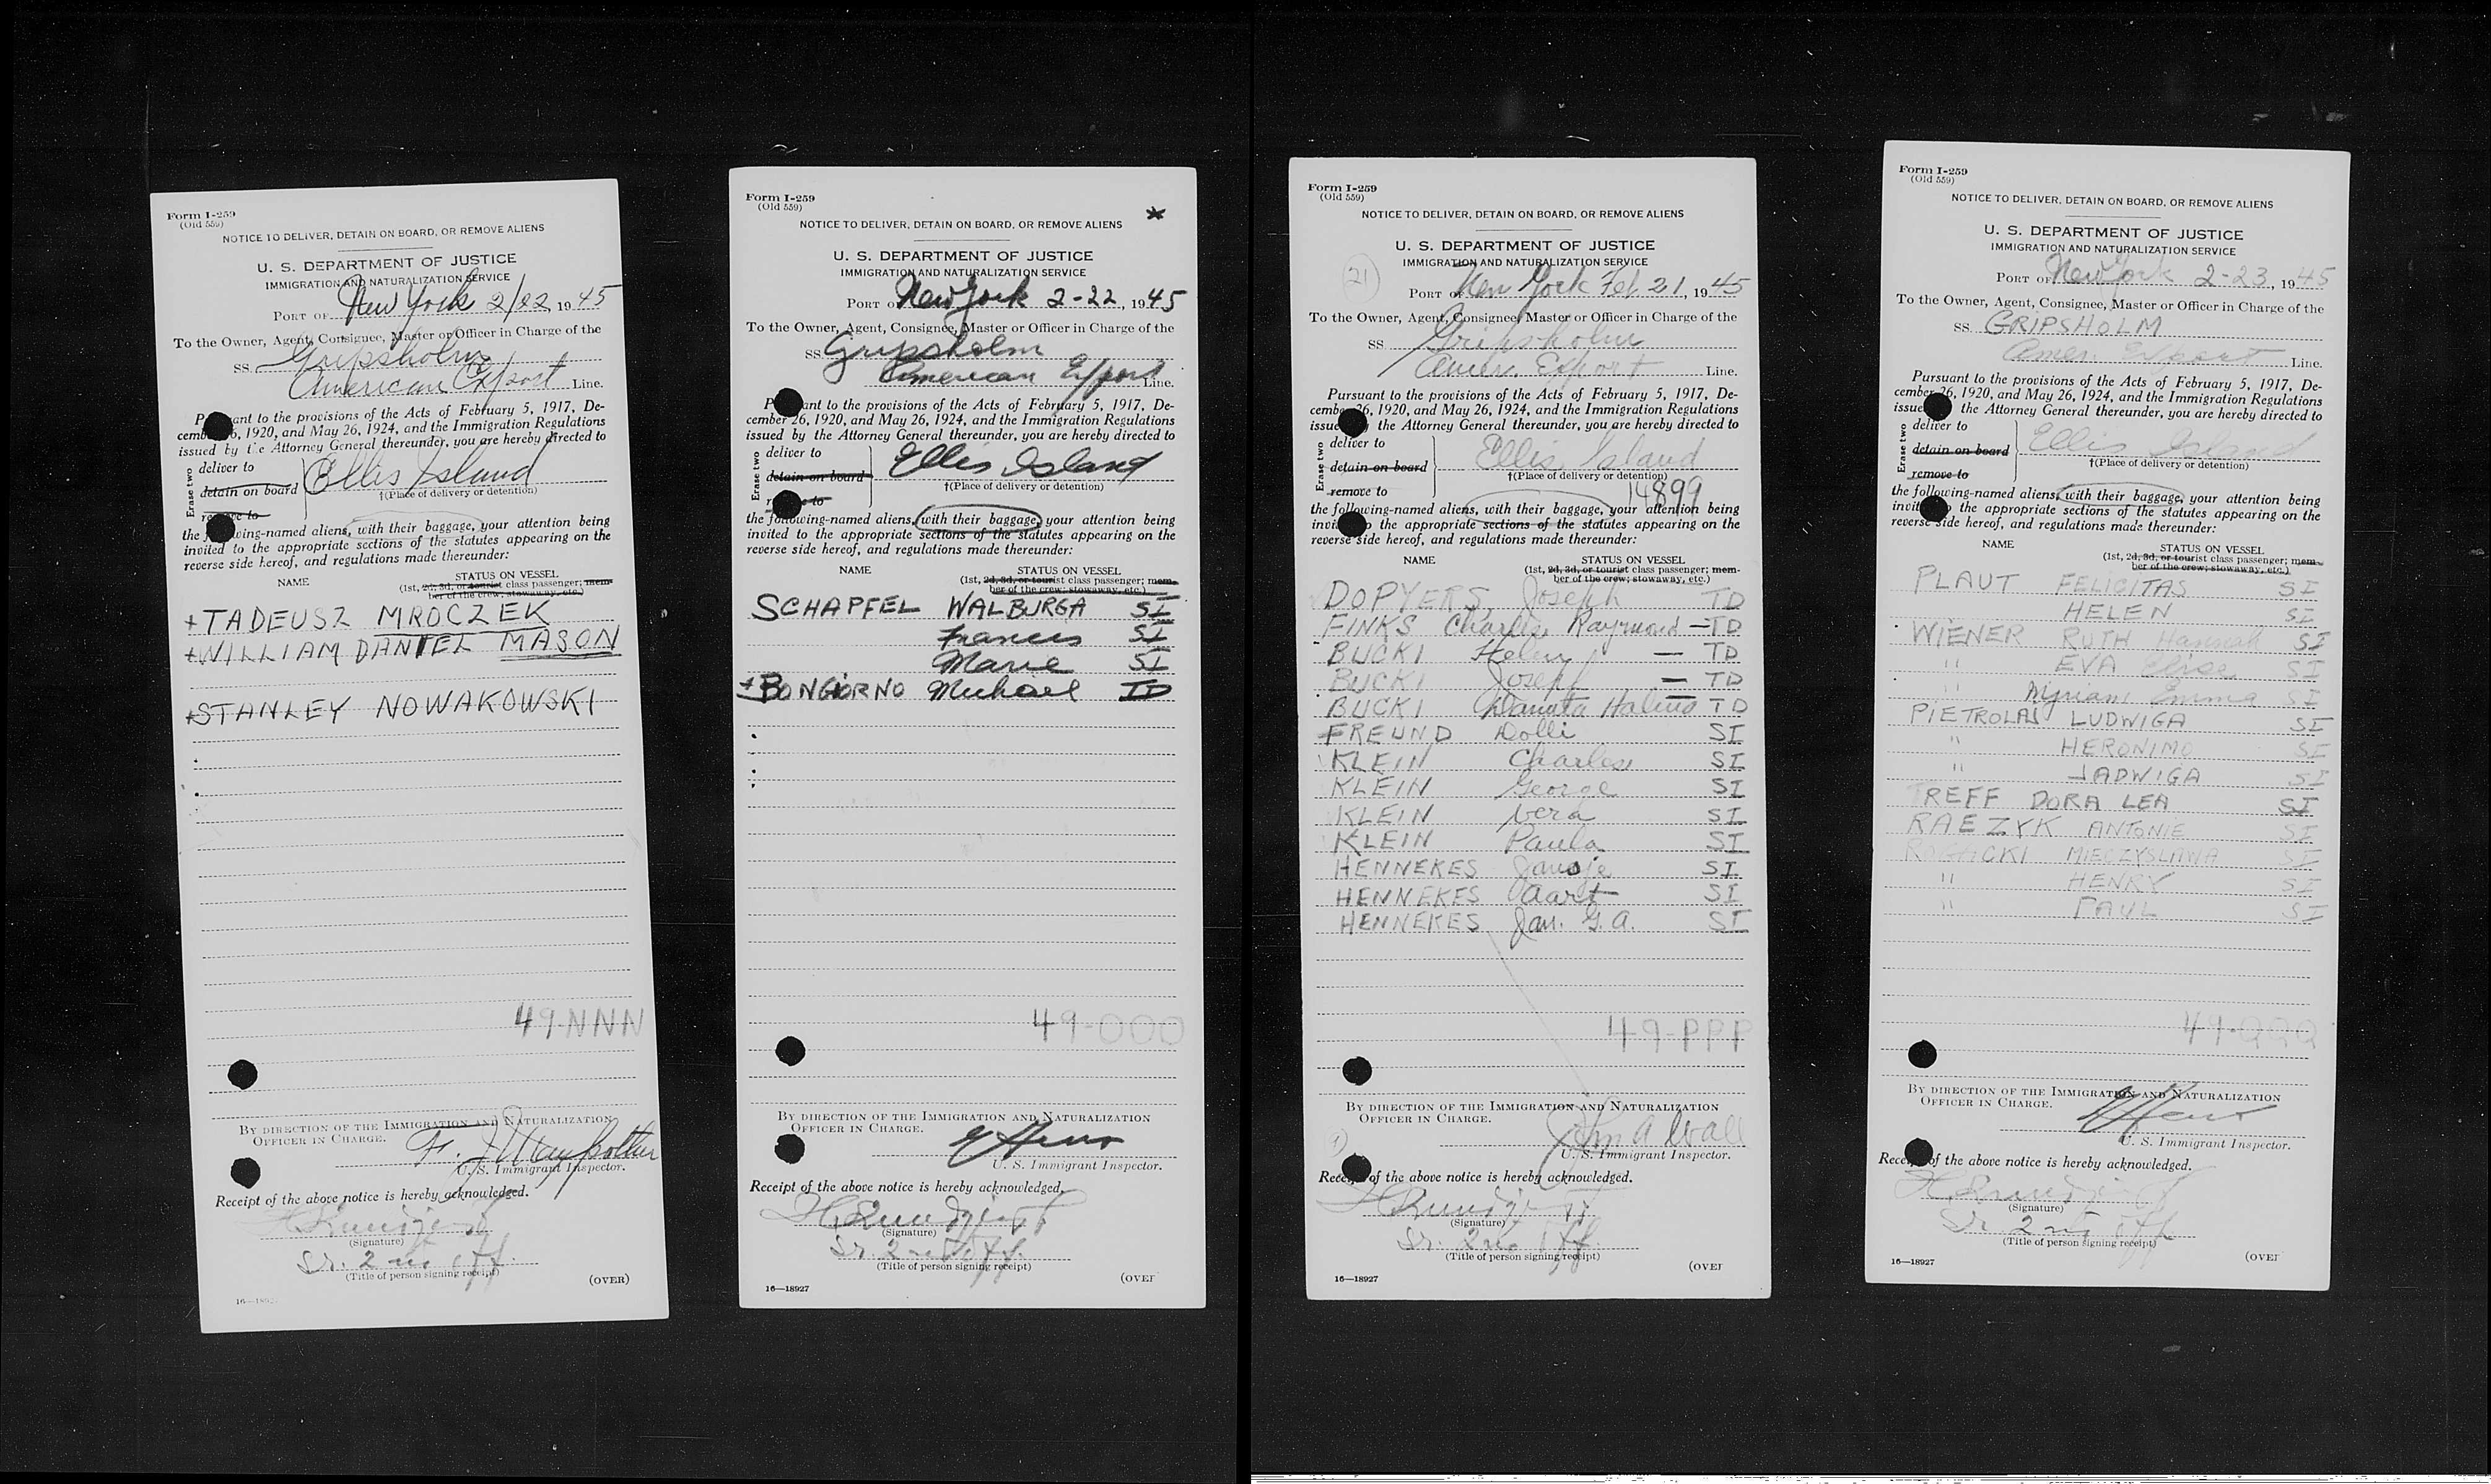 Form I-259
(Old 559)
NOTICE TO DELIVER, DETAIN ON BOARD, OR REMOVE ALIENS
U. S. DEPARTMENT OF JUSTICE
IMMIGRATION AND NATURALIZATION SERVICE
PORT OF New York 2/22, 1945
To the Owner, Agent, Consignee, Master or Officer in Charge of the
SS Gripsholm
American Export Line.
Pursuant to the provisions of the Acts of February 5, 1917, De-
cember 26, 1920, and May 26, 1924, and the Immigration Regulations
issued by the Attorney General thereunder, you are hereby directed to
Erase two
deliver to
detain on board
remove to
Ellis Island
†(Place of delivery or detention)
the following-named aliens, with their baggage, your attention being
invited to the appropriate sections of the statutes appearing on the
reverse side hereof, and regulations made thereunder:
NAME STATUS ON VESSEL
(1st, 2d, 3d, or tourist class passenger; mem-
ber of the crew; stowaway, etc.)
+TADEUSZ MROCZEK
+WILLIAM DANIEL MASON
+STANLEY NOWAKOWSKI
49-NNN
BY DIRECTION OF THE IMMIGRATION AND NATURALIZATION
OFFICER IN CHARGE.
U. S. Immigrant Inspector.
Receipt of the above notice is hereby acknowledged.
(Signature)
Sr. 2nd Off.
(Title of person signing receipt)
(OVER)
16—18927
Form I-259
(Old 559)
*
NOTICE TO DELIVER, DETAIN ON BOARD, OR REMOVE ALIENS
U. S. DEPARTMENT OF JUSTICE
IMMIGRATION AND NATURALIZATION SERVICE
PORT OF New York 2-22, 1945
To the Owner, Agent, Consignee, Master or Officer in Charge of the
SS Gripsholm
American Export Line.
Pursuant to the provisions of the Acts of February 5, 1917, De-
cember 26, 1920, and May 26, 1924, and the Immigration Regulations
issued by the Attorney General thereunder, you are hereby directed to
Erase two
deliver to
detain on board
remove to
Ellis Island
†(Place of delivery or detention)
the following-named aliens, with their baggage, your attention being
invited to the appropriate sections of the statutes appearing on the
reverse side hereof, and regulations made thereunder:
NAME STATUS ON VESSEL
(1st, 2d, 3d, or tourist class passenger; mem-
ber of the crew; stowaway, etc.)
SCHAPFEL WALBURGA SI
Frances SI
Marie SI
+BONGIORNO Michael TD
49-OOO
BY DIRECTION OF THE IMMIGRATION AND NATURALIZATION
OFFICER IN CHARGE.
U. S. Immigrant Inspector.
Receipt of the above notice is hereby acknowledged.
(Signature)
Sr. 2nd Off.
(Title of person signing receipt)
(OVER
16—18927
Form I-259
(Old 559)
NOTICE TO DELIVER, DETAIN ON BOARD, OR REMOVE ALIENS
U. S. DEPARTMENT OF JUSTICE
IMMIGRATION AND NATURALIZATION SERVICE
21
PORT OF New York Feb 21, 1945
To the Owner, Agent, Consignee, Master or Officer in Charge of the
SS Gripsholm
Amer. Export Line.
Pursuant to the provisions of the Acts of February 5, 1917, De-
cember 26, 1920, and May 26, 1924, and the Immigration Regulations
issued by the Attorney General thereunder, you are hereby directed to
Erase two
deliver to
detain on board
remove to
Ellis Island
†(Place of delivery or detention)
14899
the following-named aliens, with their baggage, your attention being
invited to the appropriate sections of the statutes appearing on the
reverse side hereof, and regulations made thereunder:
NAME STATUS ON VESSEL
(1st, 2d, 3d, or tourist class passenger; mem-
ber of the crew; stowaway, etc.)
DOPYERS, Joseph TD
FINKS Charles Raymond — TD
BUCKI Helen — TD
BUCKI Joseph — TD
BUCKI Danuta Halina TD
FREUND Dolli SI
KLEIN Charles SI
KLEIN George SI
KLEIN Vera SI
KLEIN Paula SI
HENNEKES Jansje SI
HENNEKES Aart SI
HENNEKES Jan. G. A. SI
49-PPP
BY DIRECTION OF THE IMMIGRATION AND NATURALIZATION
OFFICER IN CHARGE.
John A Wall
U. S. Immigrant Inspector.
Receipt of the above notice is hereby acknowledged.
(Signature)
Sr. 2nd Off.
(Title of person signing receipt)
(OVER
16—18927
Form I-259
(Old 559)
NOTICE TO DELIVER, DETAIN ON BOARD, OR REMOVE ALIENS
U. S. DEPARTMENT OF JUSTICE
IMMIGRATION AND NATURALIZATION SERVICE
PORT OF New York 2-23, 1945
To the Owner, Agent, Consignee, Master or Officer in Charge of the
SS. GRIPSHOLM
Amer. Export Line.
Pursuant to the provisions of the Acts of February 5, 1917, De-
cember 26, 1920, and May 26, 1924, and the Immigration Regulations
issued by the Attorney General thereunder, you are hereby directed to
Erase two
deliver to
detain on board
remove to
Ellis Island
†(Place of delivery or detention)
the following-named aliens, with their baggage, your attention being
invited to the appropriate sections of the statutes appearing on the
reverse side hereof, and regulations made thereunder:
NAME STATUS ON VESSEL
(1st, 2d, 3d, or tourist class passenger; mem-
ber of the crew; stowaway, etc.)
PLAUT FELICITAS SI
HELEN SI
WIENER RUTH Hannah SI
" EVA Elise SI
" Myriam Emma SI
PIETROLAJ LUDWIGA SI
" HERONIMO SI
" JADWIGA SI
TREFF DORA LEA SI
RAEZYK ANTONIE SI
ROGACKI MIECZYSLAWA SI
" HENRY SI
" PAUL SI
49-QQQ
BY DIRECTION OF THE IMMIGRATION AND NATURALIZATION
OFFICER IN CHARGE.
U. S. Immigrant Inspector.
Receipt of the above notice is hereby acknowledged.
(Signature)
Sr. 2nd Off
(Title of person signing receipt)
(OVER
16—18927